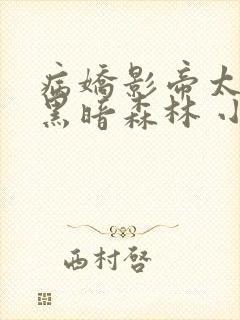 病嬌影帝太
黑暗森林 小
西村啓